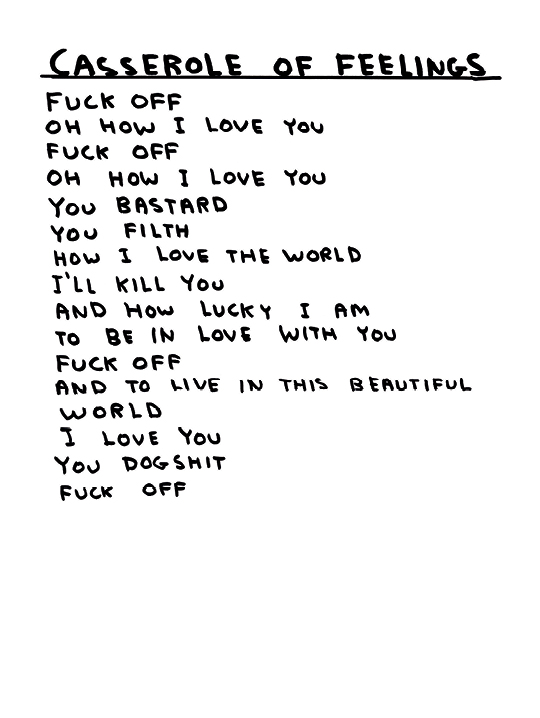 CASSEROLE OF FEELINGS
FUCK OFF
OH HOW I LOVE YOU
FUCK OFF
OH HOW I LOVE YOU
YOU BASTARD
YOU FILTH
HOW I LOVE THE WORLD
I'LL KILL YOU
AND HOW LUCKY I AM
TO BE IN LOVE WITH YOU
FUCK OFF
AND TO LIVE IN THIS BEAUTIFUL
WORLD
I LOVE YOU
YOU DOGSHIT
FUCK OFF